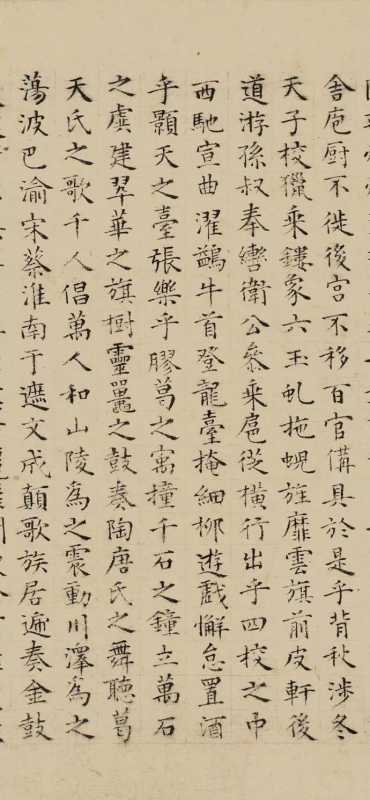 舍庖厨不徙後宫不移百官備具於是乎背秋涉冬
天子校獵乘鏤象六玉虬拖蜺旌靡雲旗前皮軒後
道游孫叔奉轡衛公叅乘扈從橫行出乎四校之中
西馳宣曲濯鷁牛首登龍臺掩細柳遊戲懈怠置酒
乎顥天之臺張樂乎膠葛之寓撞千石之鐘立萬石
之虡建翠華之旗樹靈鼉之鼓奏陶唐氏之舞聽葛
天氏之歌千人倡萬人和山陵為之震動川澤為之
蕩波巴渝宋蔡淮南于遮文成顛歌族居遞奏金鼓